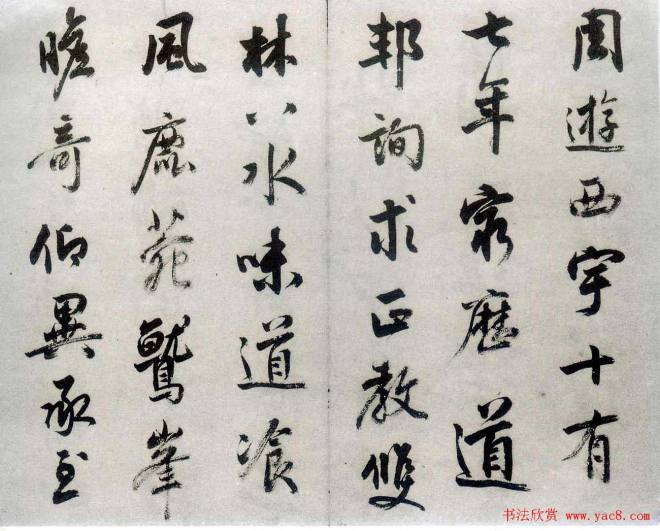 周遊西宇十有
七年窮歷道
邦詢求正教雙
林八水味道飡
風鹿菀鷲峯
瞻奇仰異承至
书法欣赏 www.yac8.com